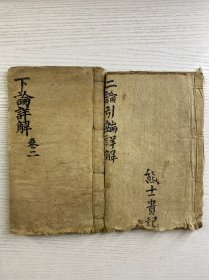 下論詳解
卷二
二論引端詳解
熊士貴記